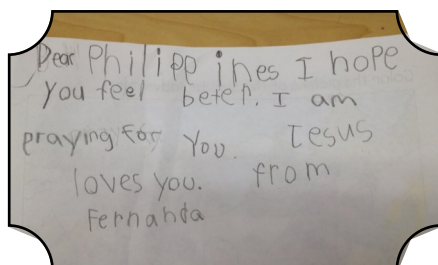 Dear Philippines I hope
you feel beter. I am
praying for you. Jesus
loves you. from
Fernanda